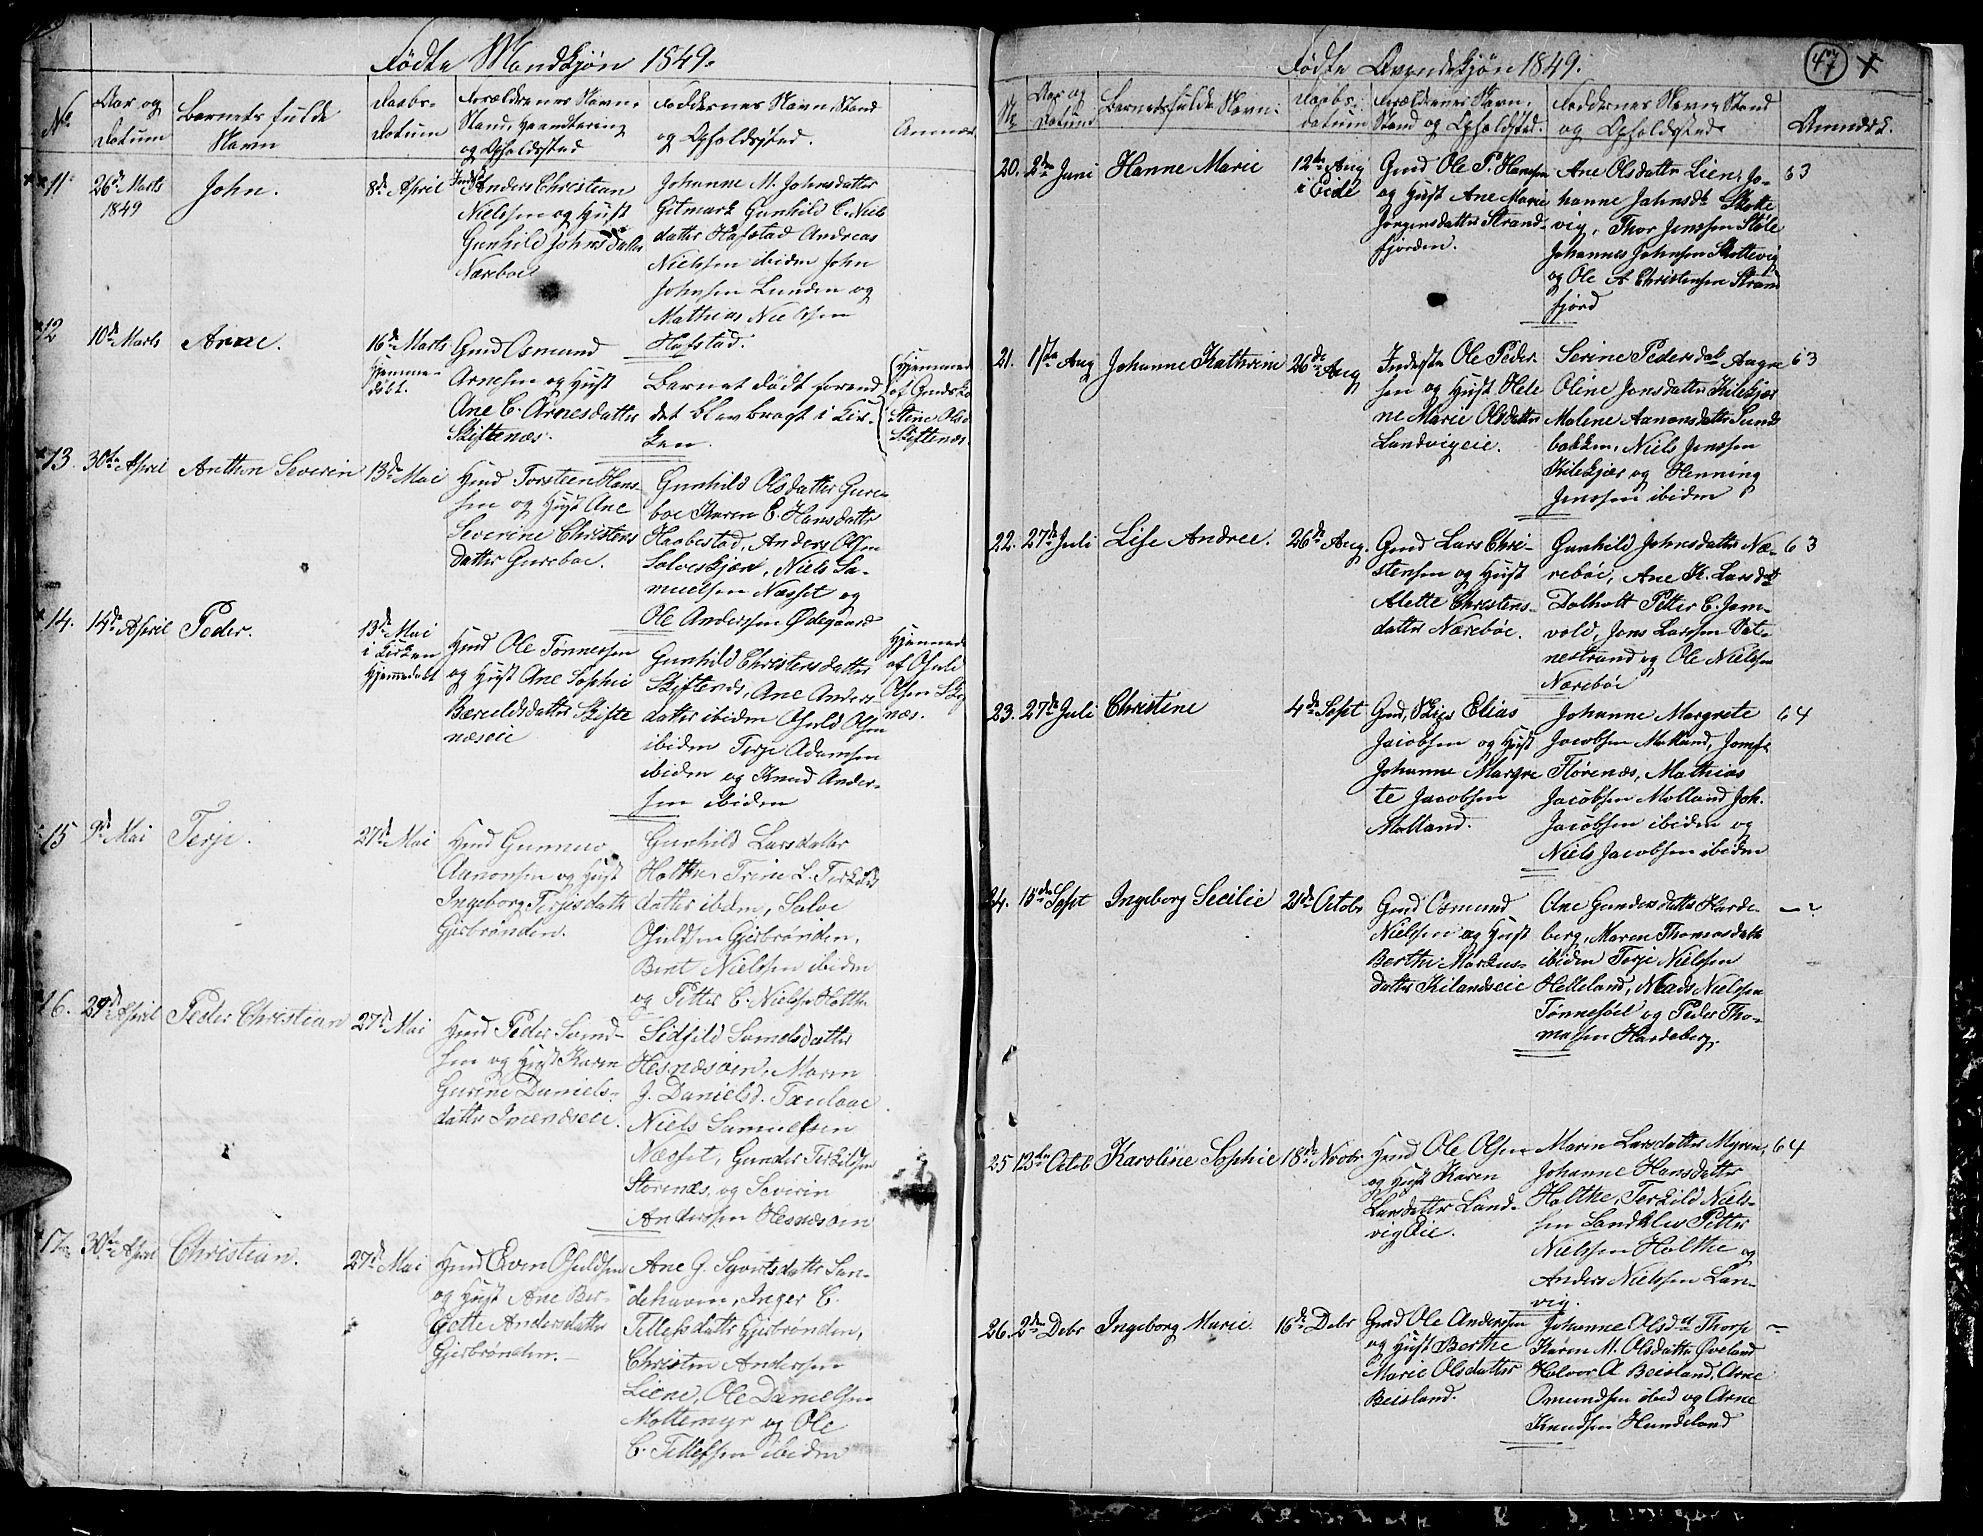 Fødte Mandkjøn 1849.
No
Aar og
Datum
Barnets fulde
Navn
Daabs-
Datum
Forældrenes Navn,
Stand, Haandtering
og Opholdssted
Faddernes Navn, Stand
og Opholdssted.
Anmær
11
26de Marts
1849
John.
8de April
Inds. Anders Christian
Nielssen og Hust
Gunhild Johnsdatter
Næreboe
Johanne M. Johnsdatter
Gitmark Gunhild C. Niels
datter Hafstad Andreas
Nielssen ibidem John
Johnsen Lunden og
Mathias Nielssen
Hafstad.
12
10de Marts
Arne.
16de Marts
Hjemme-
døbt.
Gmd Osmund
Arnesen og Hust
Ane C. Arnesdatter
Skiftenæs.
Barnet dødt forend
det blev bragt i Kir-
ken.
Hjemmed
af Gmdsko
Stine Olsd
Skiftenæs
13.
30te April
Anthon Severin
13de Mai
Hmd Torsteen Hans-
sen og Hust Ane
Severine Christens
datter Gureboe.
Gunhild Olsdatter Gure-
boe Karen C. Hansdatter
Haabestad, Anders Olsen
Solveskjær, Niels Sa-
muelsen Næsset og
Ole Anderssen Ødegaard
14.
14de April
Peder.
13de Mai
i Kirken
Hjemdøbt
Hmd Ole Tønnessen
og Hust Ane Sophie
Bæruldsdatter Skifte
næseie
Gunhild Christensdatter
Skiftenæs, Ane Anders-
datter ibidem Osuld Olsen
ibidem Terje Adamsen
ibidem og Knud Ander-
sen ibidem
Hjemmed
af Osuld
Olsen Skif
næs.
15
9de Mai
Terje.
27de Mai
Hmd Gunnuv
Aanonsen og Hust
Ingeborg Terjesdatt
Gjerbrønden.
Gunhild Larsdatter
Holthe, Trine L. Terkilds
datter ibidem, Salve
Osuldsen Gjerbrønden,
Bent Nielssen ibidem
og Petter C. Nielsen Holthe
16.
29de April
Peder Christian
27de Mai
Hmd Peder Samu-
sen og Hust Karen
Gurine Daniels-
datter Inændseie.
Sidsild Samelsdatter
Hesnæsøien, Maren
J. Danielsd.
Niels Samuelsen
Næsset, Gunder Terkilssen
Storenæs, og Severin
Anderssen Hesnæsøien
17
30te April
Christian.
27de Mai
Hmd Even Osuldsen
og Hust Ane Ber-
gette Andersdatter
Gjerbrønden.
Ane G. Syvertsdatter San-
dehaven, Inger C.
Tellefsdatter Gjerbrønden,
Christen Anderssen
Liene, Ole Danielsen
Moltemyr og Ole
C. Tellefsen ibidem
Fødte Qvindekjøn 1849.
47
No
Aar og
Datum
Barnets fulde Navn.
Daabs-
datum
Forældrenes Navn,
Stand og Opholdsted.
Faddernes Navn, Stand
og Opholdsted.
Anmærk.
20.
2den Juni
Hanne Marie
12te Aug
i Eide
Gmd Ole P. Hanssen
og Hust Ane Marie
Jørgensdatter Strand-
fjorden.
Ane Olsdatter Lien, Jo-
hanne Jahnsdr Skotte
vig, Thor Jenssen Støle
Johannes Johnsen Skottevig
og Ole A Christensen Strand
fjord
63
21.
17de Aug
Johanne Kathrine
26de Aug
Inderste Ole Peder-
sen og Hust Hele
ne Marie Olsdatter
Landvigeie.
Serine Pedersdatr Augne
Oline Jensdatter Kilekjær
Malene Aanonsdatter Sund
bakken, Niels Jenssen
Kilekjær og Henning
Jenssen ibidem
63
22.
27de Juli
Lise Andree.
26de Aug.
Gmd Lars Chri-
stensen og Hust
Alette Christens-
datter Nærebøe.
Gunhild Johnsdatter Næ-
rebøe, Ane K. Larsdat
Dalholt Petter C. Jam-
vold, Jens Larssen Vat-
nestrand og Ole Nielssen
Nærebøe
63
23.
27de Juli
Christine
4de Sept
Gmd, Skips Elias
Jacobsen og Hust
Johanne Margre
te Jacobsen
Molland.
Johanne Margrete
Jacobsen Molland, Jomfr
Flørenæs, Mathias
Jacobsen Molland Joh.
Jacobsen ibidem og
Niels Jacobsen ibidem
64
24.
15de Sept
Ingeborg Secilie
21de Octob
Gmd Osmund
Nielssen og Hust
Berthe Markus-
datter Kilandseie
Ane Gundersdatter Harde-
berg, Maren Thomasdatter
ibidem Terje Nielssen
Helleland, Mads Nielssen
Tønnesøel og Peder Tho-
massen Hardeberg.
—"
25
13de Octob
Karoline Sophie
18de Novbr
Hmd Ole Olsen
og Hust Karen
Larsdatter Land-
vigEie.
Maren Larsdatter Myren,
Johanne Hansdatter
Holthe, Terkild Niels-
sen Landklev Petter
Nielssen Holthe og
Anders Nielssen Lan-
vig.
64
26.
2den Debr
Ingeborg Marie
16de Debr
Gmd Ole Anderssen
og Hust Berthe
Marie Olsdatter
Beisland.
Johanne Olsdtr Thorp
Karen M. Olsdatter Qveland
Halvor A Beisland, Arne
Omundsen ibid og Arne
Knudsen Hundeland
—